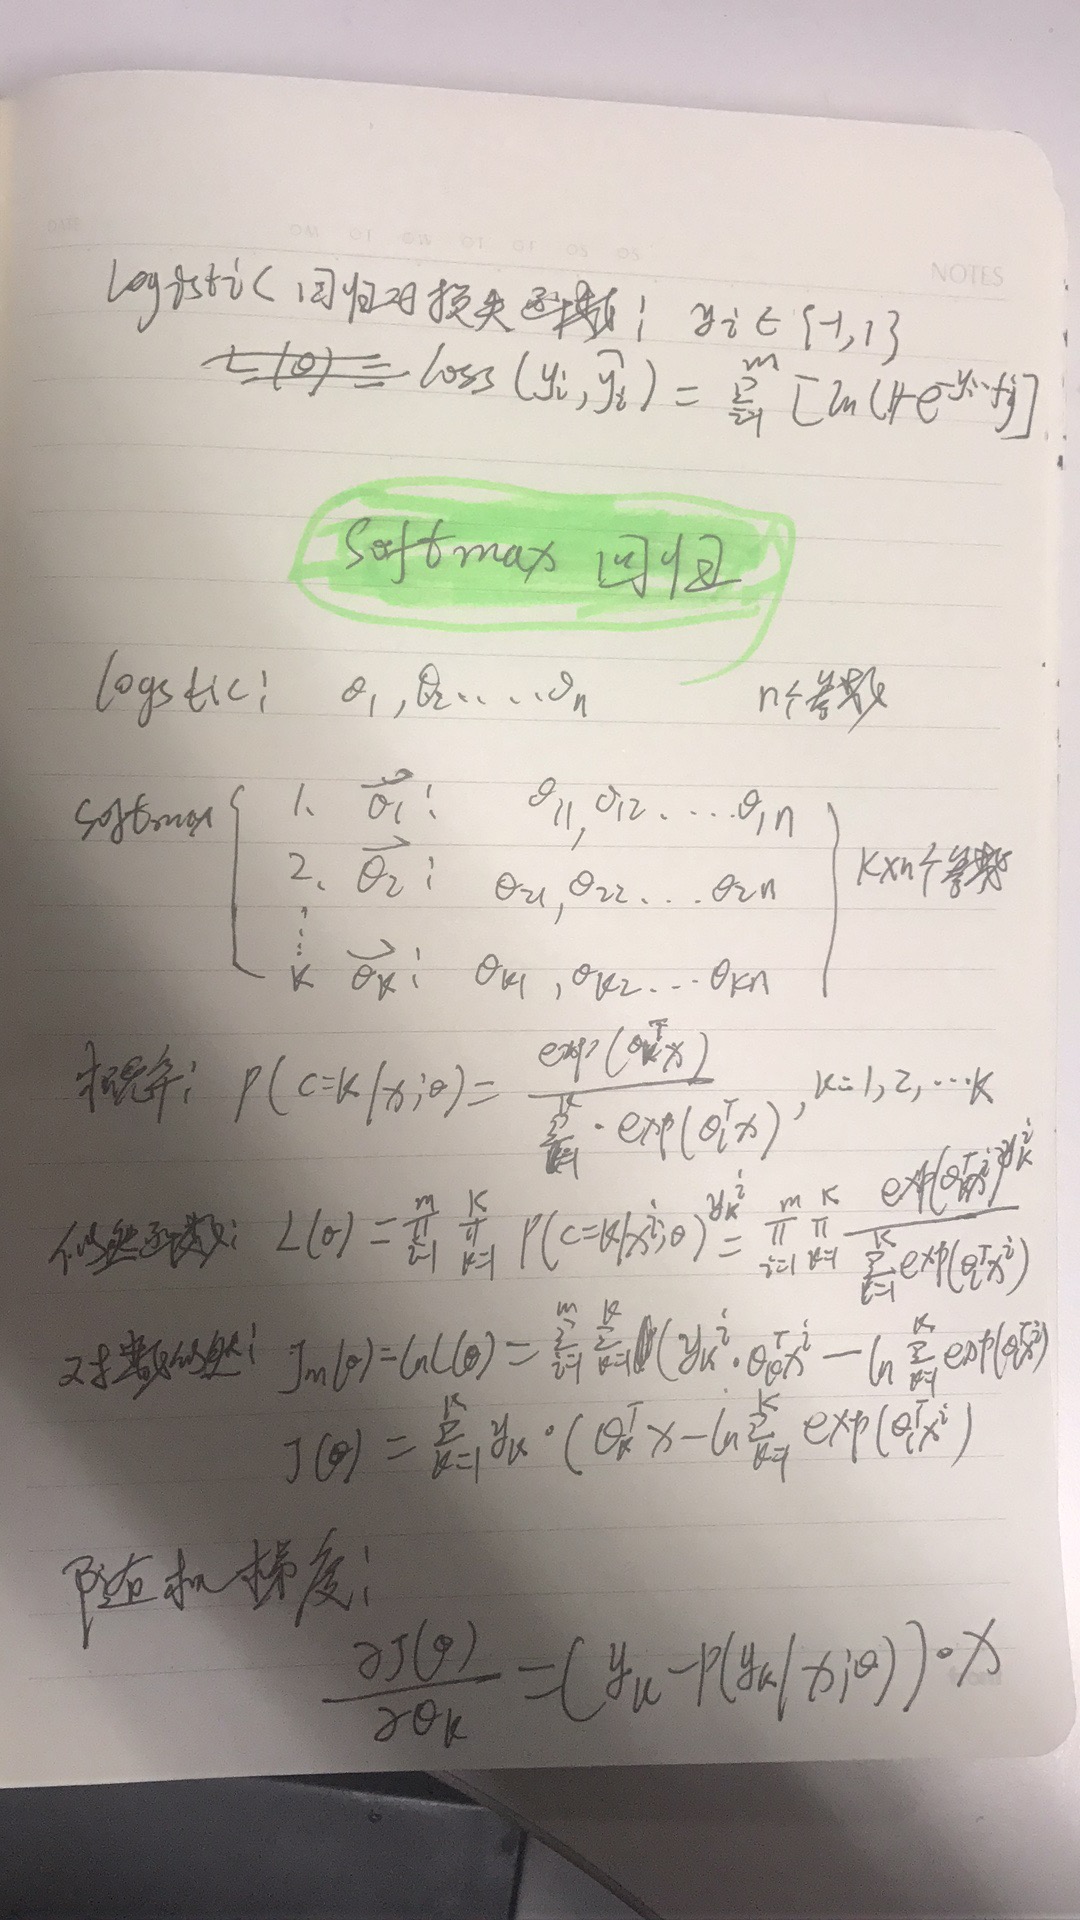 DATE
NOTES
logistic 回归的损失函数: yi ∈ {-1,1}
L(θ) = loss (yi, ŷi) = Σ_{i=1}^{m} [ln(1+e^{-yi·fi})]
Softmax 回归
logstic: θ1, θ2.....θn n个参数
softmax { 1. θ⃗1: θ11, θ12....θ1n
2. θ⃗2: θ21, θ22....θ2n } K×n个参数
⋮
K θ⃗K: θK1, θK2...θKn
概率: P(C=K|x;θ) = exp(θK^T x) / Σ_{k=1}^{K} · exp(θl^T x), K=1,2,…K
似然函数: L(θ) = Π_{i=1}^{m} Π_{k=1}^{K} P(C=K|x^i;θ)^{yk^i} = Π_{i=1}^{m} Π_{k=1}^{K} exp(θk^T x^i)^{yk^i} / Σ_{l=1}^{K} exp(θl^T x^i)
对数似然: Jm(θ) = lnL(θ) = Σ_{i=1}^{m} Σ_{k=1}^{K} (yk^i · θk^T x^i − ln Σ_{k=1}^{K} exp(θl^T x^i)
J(θ) = Σ_{k=1}^{K} yk · (θk^T x − ln Σ_{k=1}^{K} exp(θl^T x^i)
随机梯度:
∂J(θ) / ∂θk = (yk − P(yk|x;θ)) · x